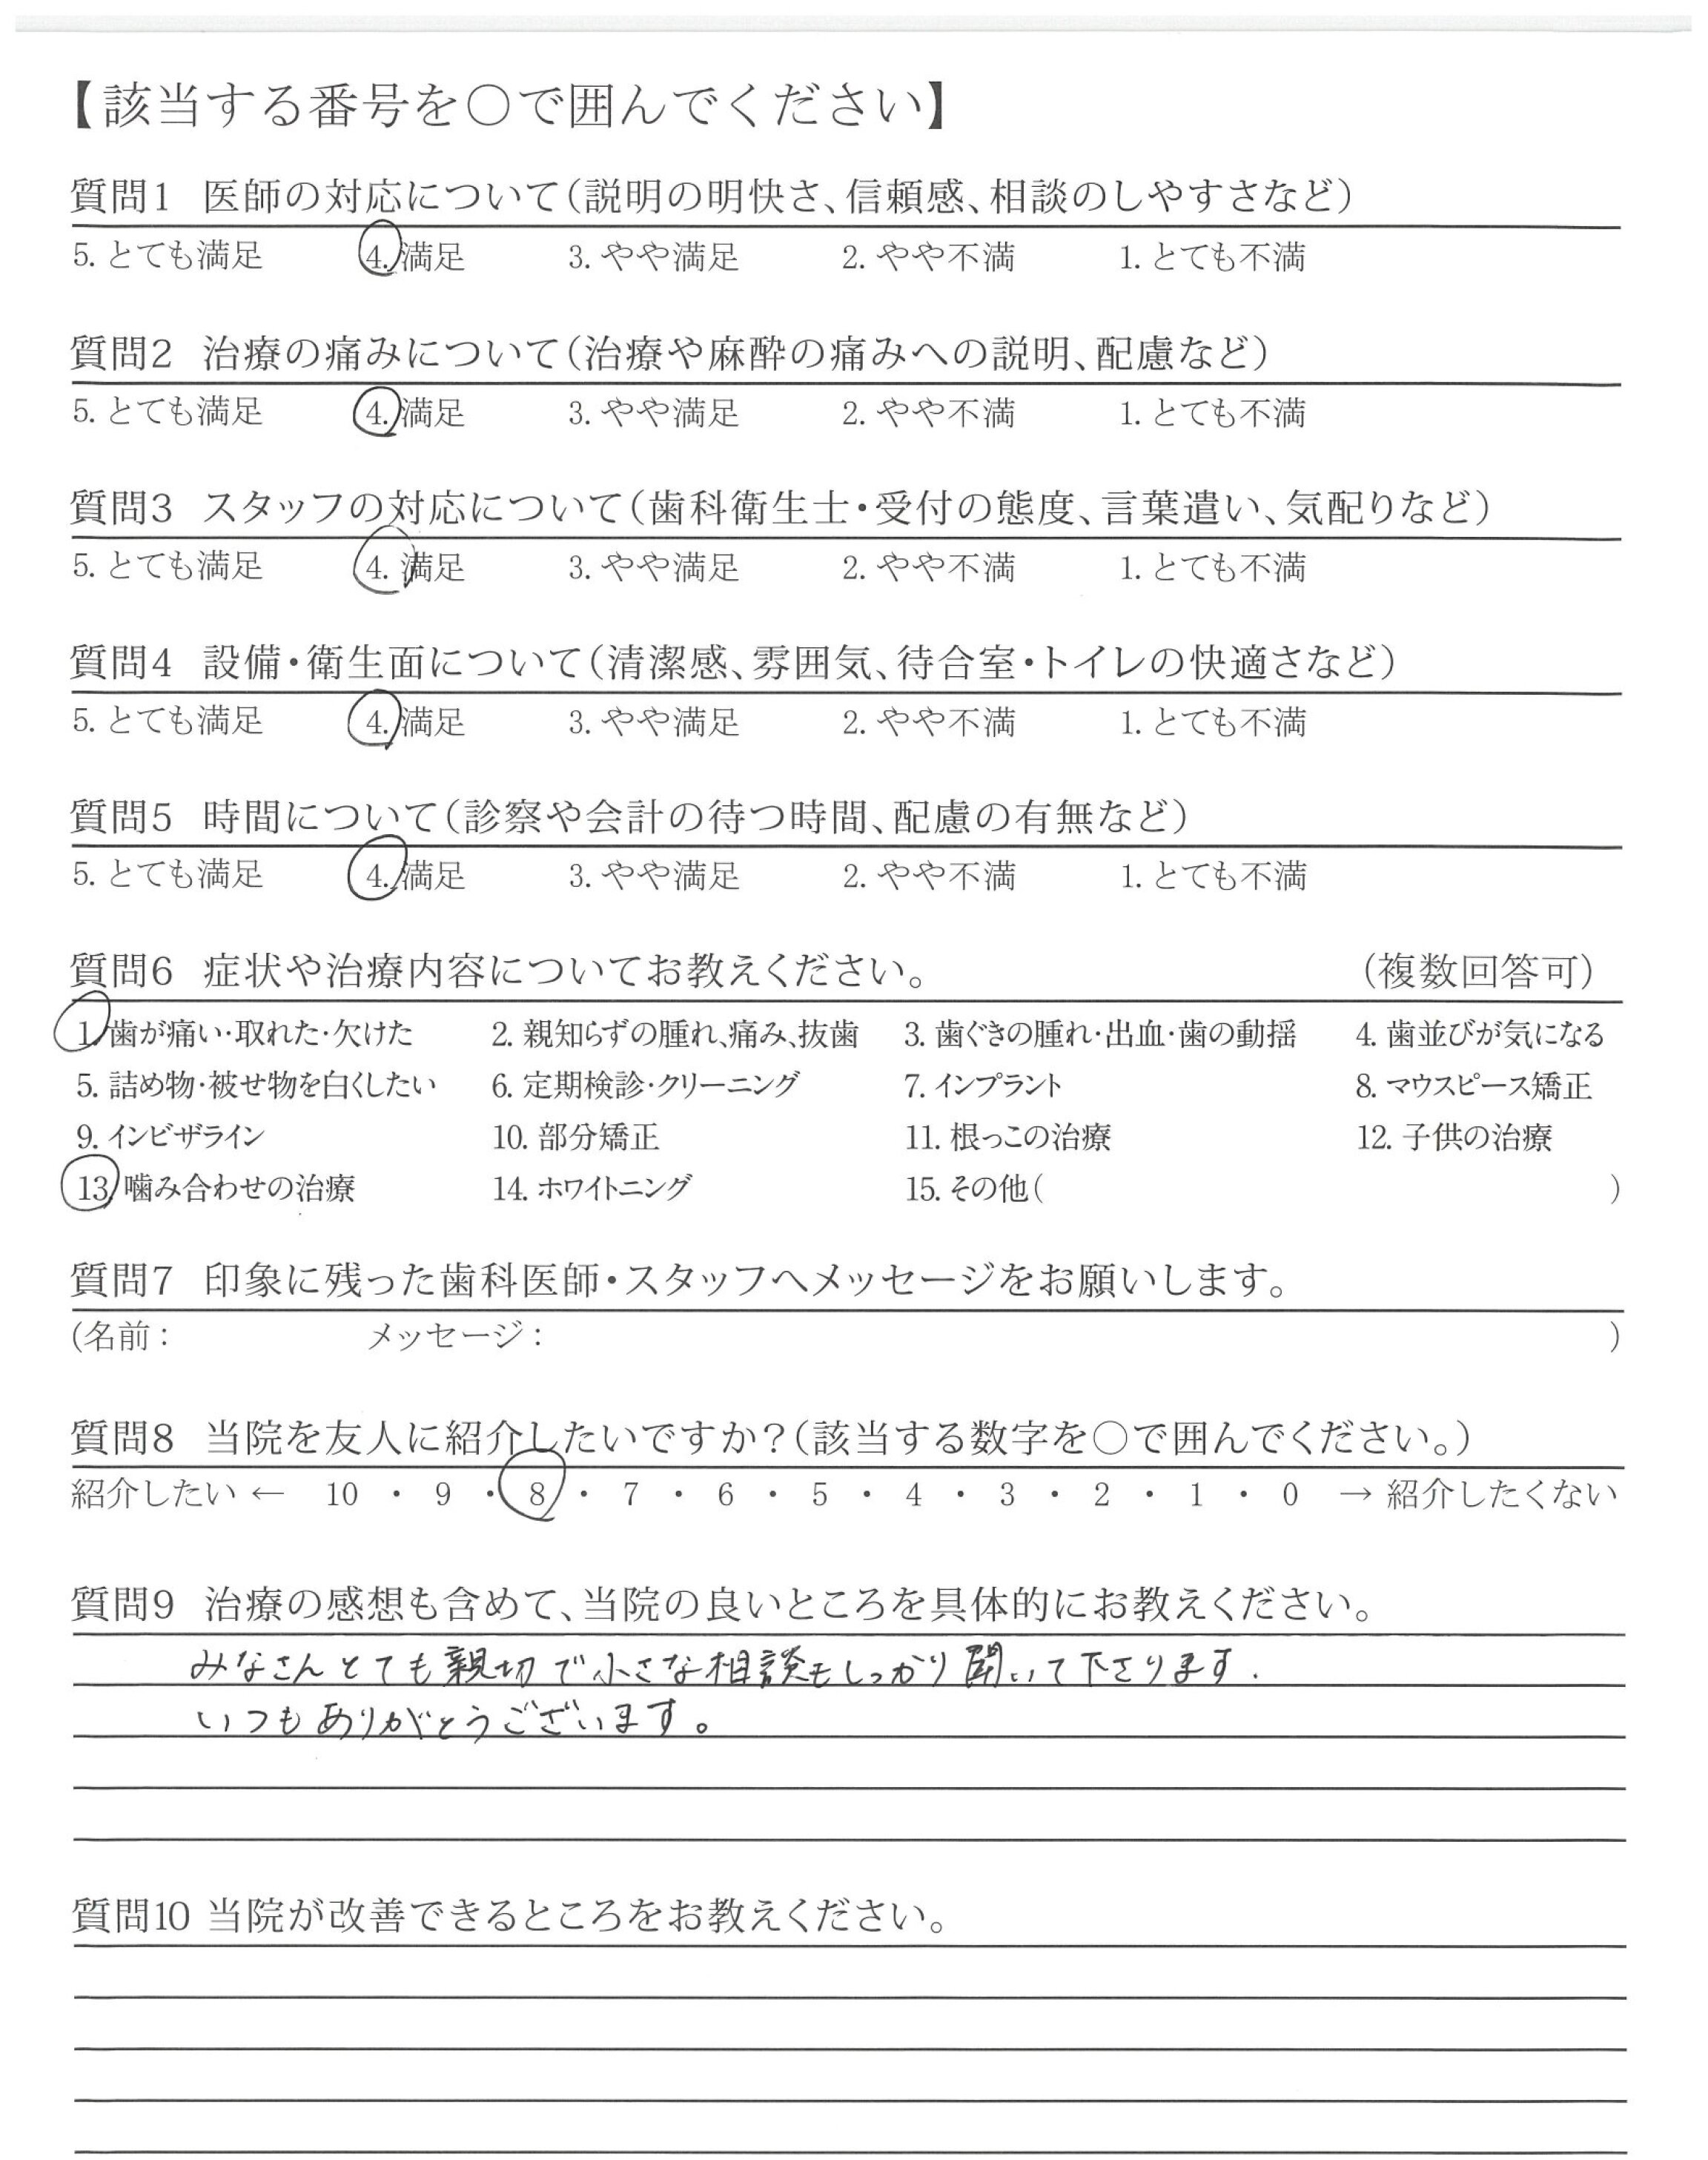 【該当する番号を○で囲んでください】
質問1 医師の対応について(説明の明快さ、信頼感、相談のしやすさなど)
5. とても満足 4. 満足 3. やや満足 2. やや不満 1. とても不満
質問2 治療の痛みについて(治療や麻酔の痛みへの説明、配慮など)
5. とても満足 4. 満足 3. やや満足 2. やや不満 1. とても不満
質問3 スタッフの対応について(歯科衛生士・受付の態度、言葉遣い、気配りなど)
5. とても満足 4. 満足 3. やや満足 2. やや不満 1. とても不満
質問4 設備・衛生面について(清潔感、雰囲気、待合室・トイレの快適さなど)
5. とても満足 4. 満足 3. やや満足 2. やや不満 1. とても不満
質問5 時間について(診察や会計の待つ時間、配慮の有無など)
5. とても満足 4. 満足 3. やや満足 2. やや不満 1. とても不満
質問6 症状や治療内容についてお教えください。 (複数回答可)
1. 歯が痛い・取れた・欠けた 2. 親知らずの腫れ、痛み、抜歯 3. 歯ぐきの腫れ・出血・歯の動揺 4. 歯並びが気になる
5. 詰め物・被せ物を白くしたい 6. 定期検診・クリーニング 7. インプラント 8. マウスピース矯正
9. インビザライン 10. 部分矯正 11. 根っこの治療 12. 子供の治療
13. 噛み合わせの治療 14. ホワイトニング 15. その他( )
質問7 印象に残った歯科医師・スタッフへメッセージをお願いします。
(名前: メッセージ: )
質問8 当院を友人に紹介したいですか?(該当する数字を○で囲んでください。)
紹介したい ← 10 ・ 9 ・ 8 ・ 7 ・ 6 ・ 5 ・ 4 ・ 3 ・ 2 ・ 1 ・ 0 → 紹介したくない
質問9 治療の感想も含めて、当院の良いところを具体的にお教えください。
みなさんとても親切で小さな相談もしっかり聞いて下さります.
いつもありがとうございます。
質問10 当院が改善できるところをお教えください。